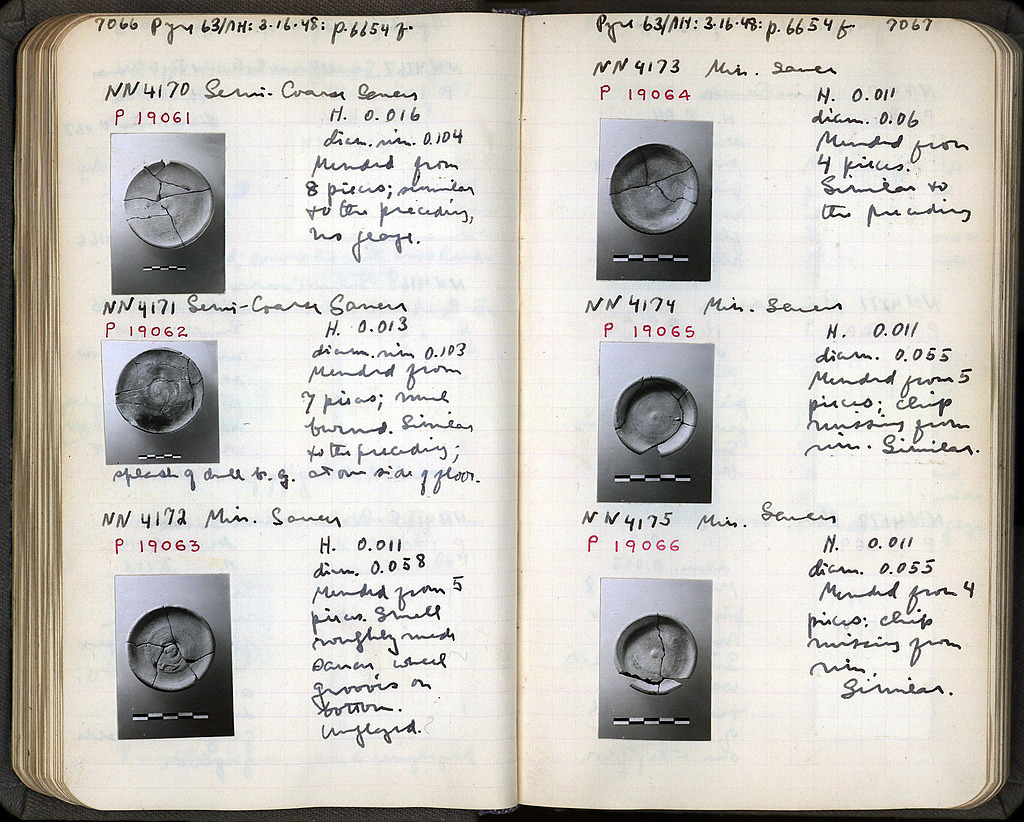 7066 Pyre 63/ΛH: 3·16·48: p. 6654 f
NN 4170 Semi-Coarse Saucer
P 19061
H. 0.016
diam. rim. 0.104
Mended from
8 pieces; similar
to the preceding,
no glaze.
NN 4171 Semi-Coarse Saucer
P 19062
H. 0.013
diam. rim 0.103
Mended from
7 pieces; much
burned. Similar
to the preceding;
splash of dull b. g. at one side of floor.
NN 4172 Min. Saucer
P 19063
H. 0.011
diam. 0.058
Mended from 5
pieces. Small
roughly made
saucer wheel
grooves on
bottom.
Unglazed.
Pyre 63/ΛH: 3·16·48: p. 6654 f 7067
NN 4173 Min. Saucer
P 19064
H. 0.011
diam. 0.06
Mended from
4 pieces.
Similar to
the preceding
NN 4174 Min. Saucer
P 19065
H. 0.011
diam. 0.055
Mended from 5
pieces; chip
missing from
rim. Similar.
NN 4175 Min. Saucer
P 19066
H. 0.011
diam. 0.055
Mended from 4
pieces; chip
missing from
rim.
Similar.